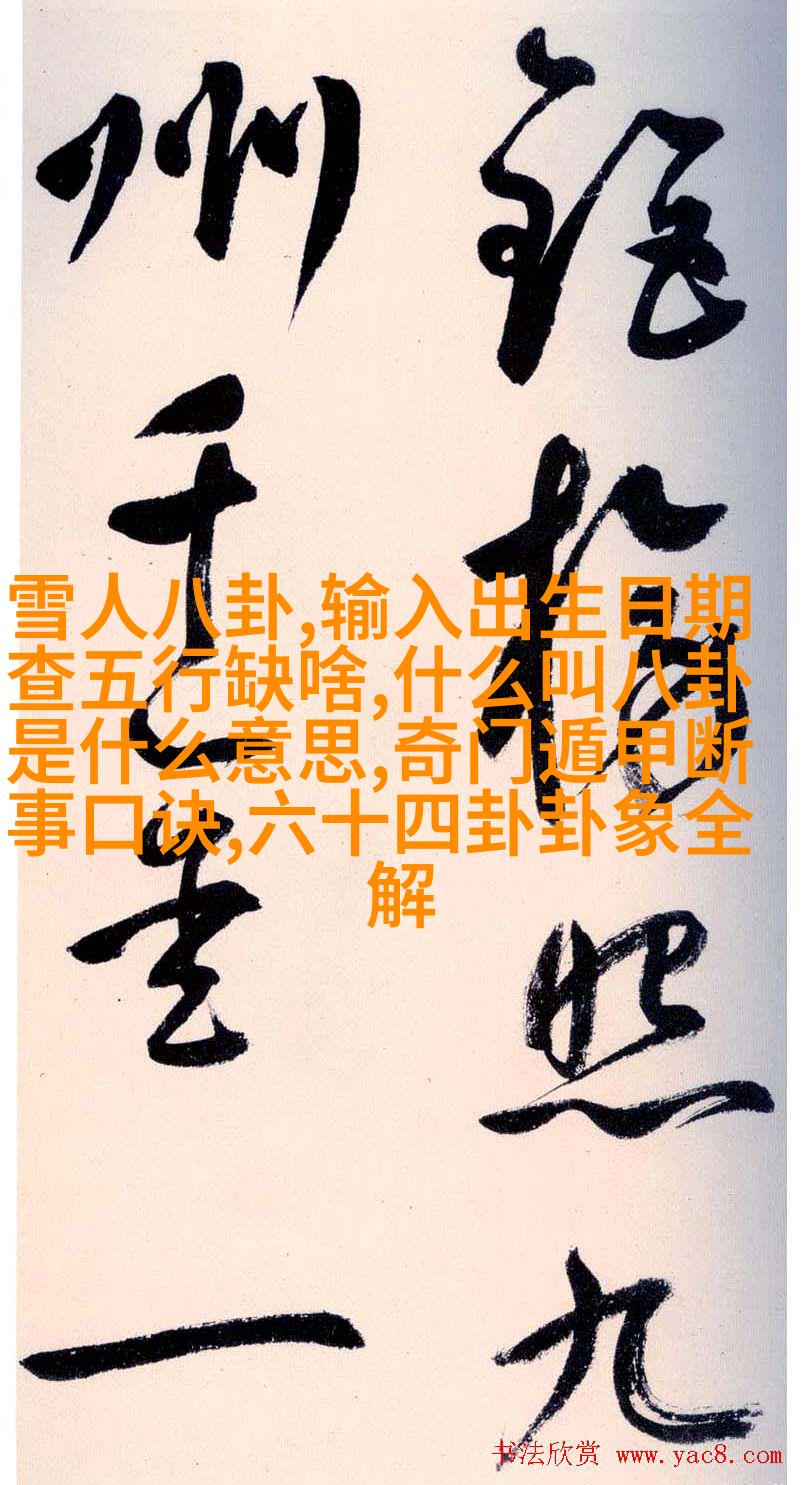 照九
州千一
雪人八卦,输入出生日期
查五行缺啥,什么叫八卦
是什么意思,奇门遁甲断
事口诀,六十四卦卦象全
解
书法欣赏 www.yac8.com